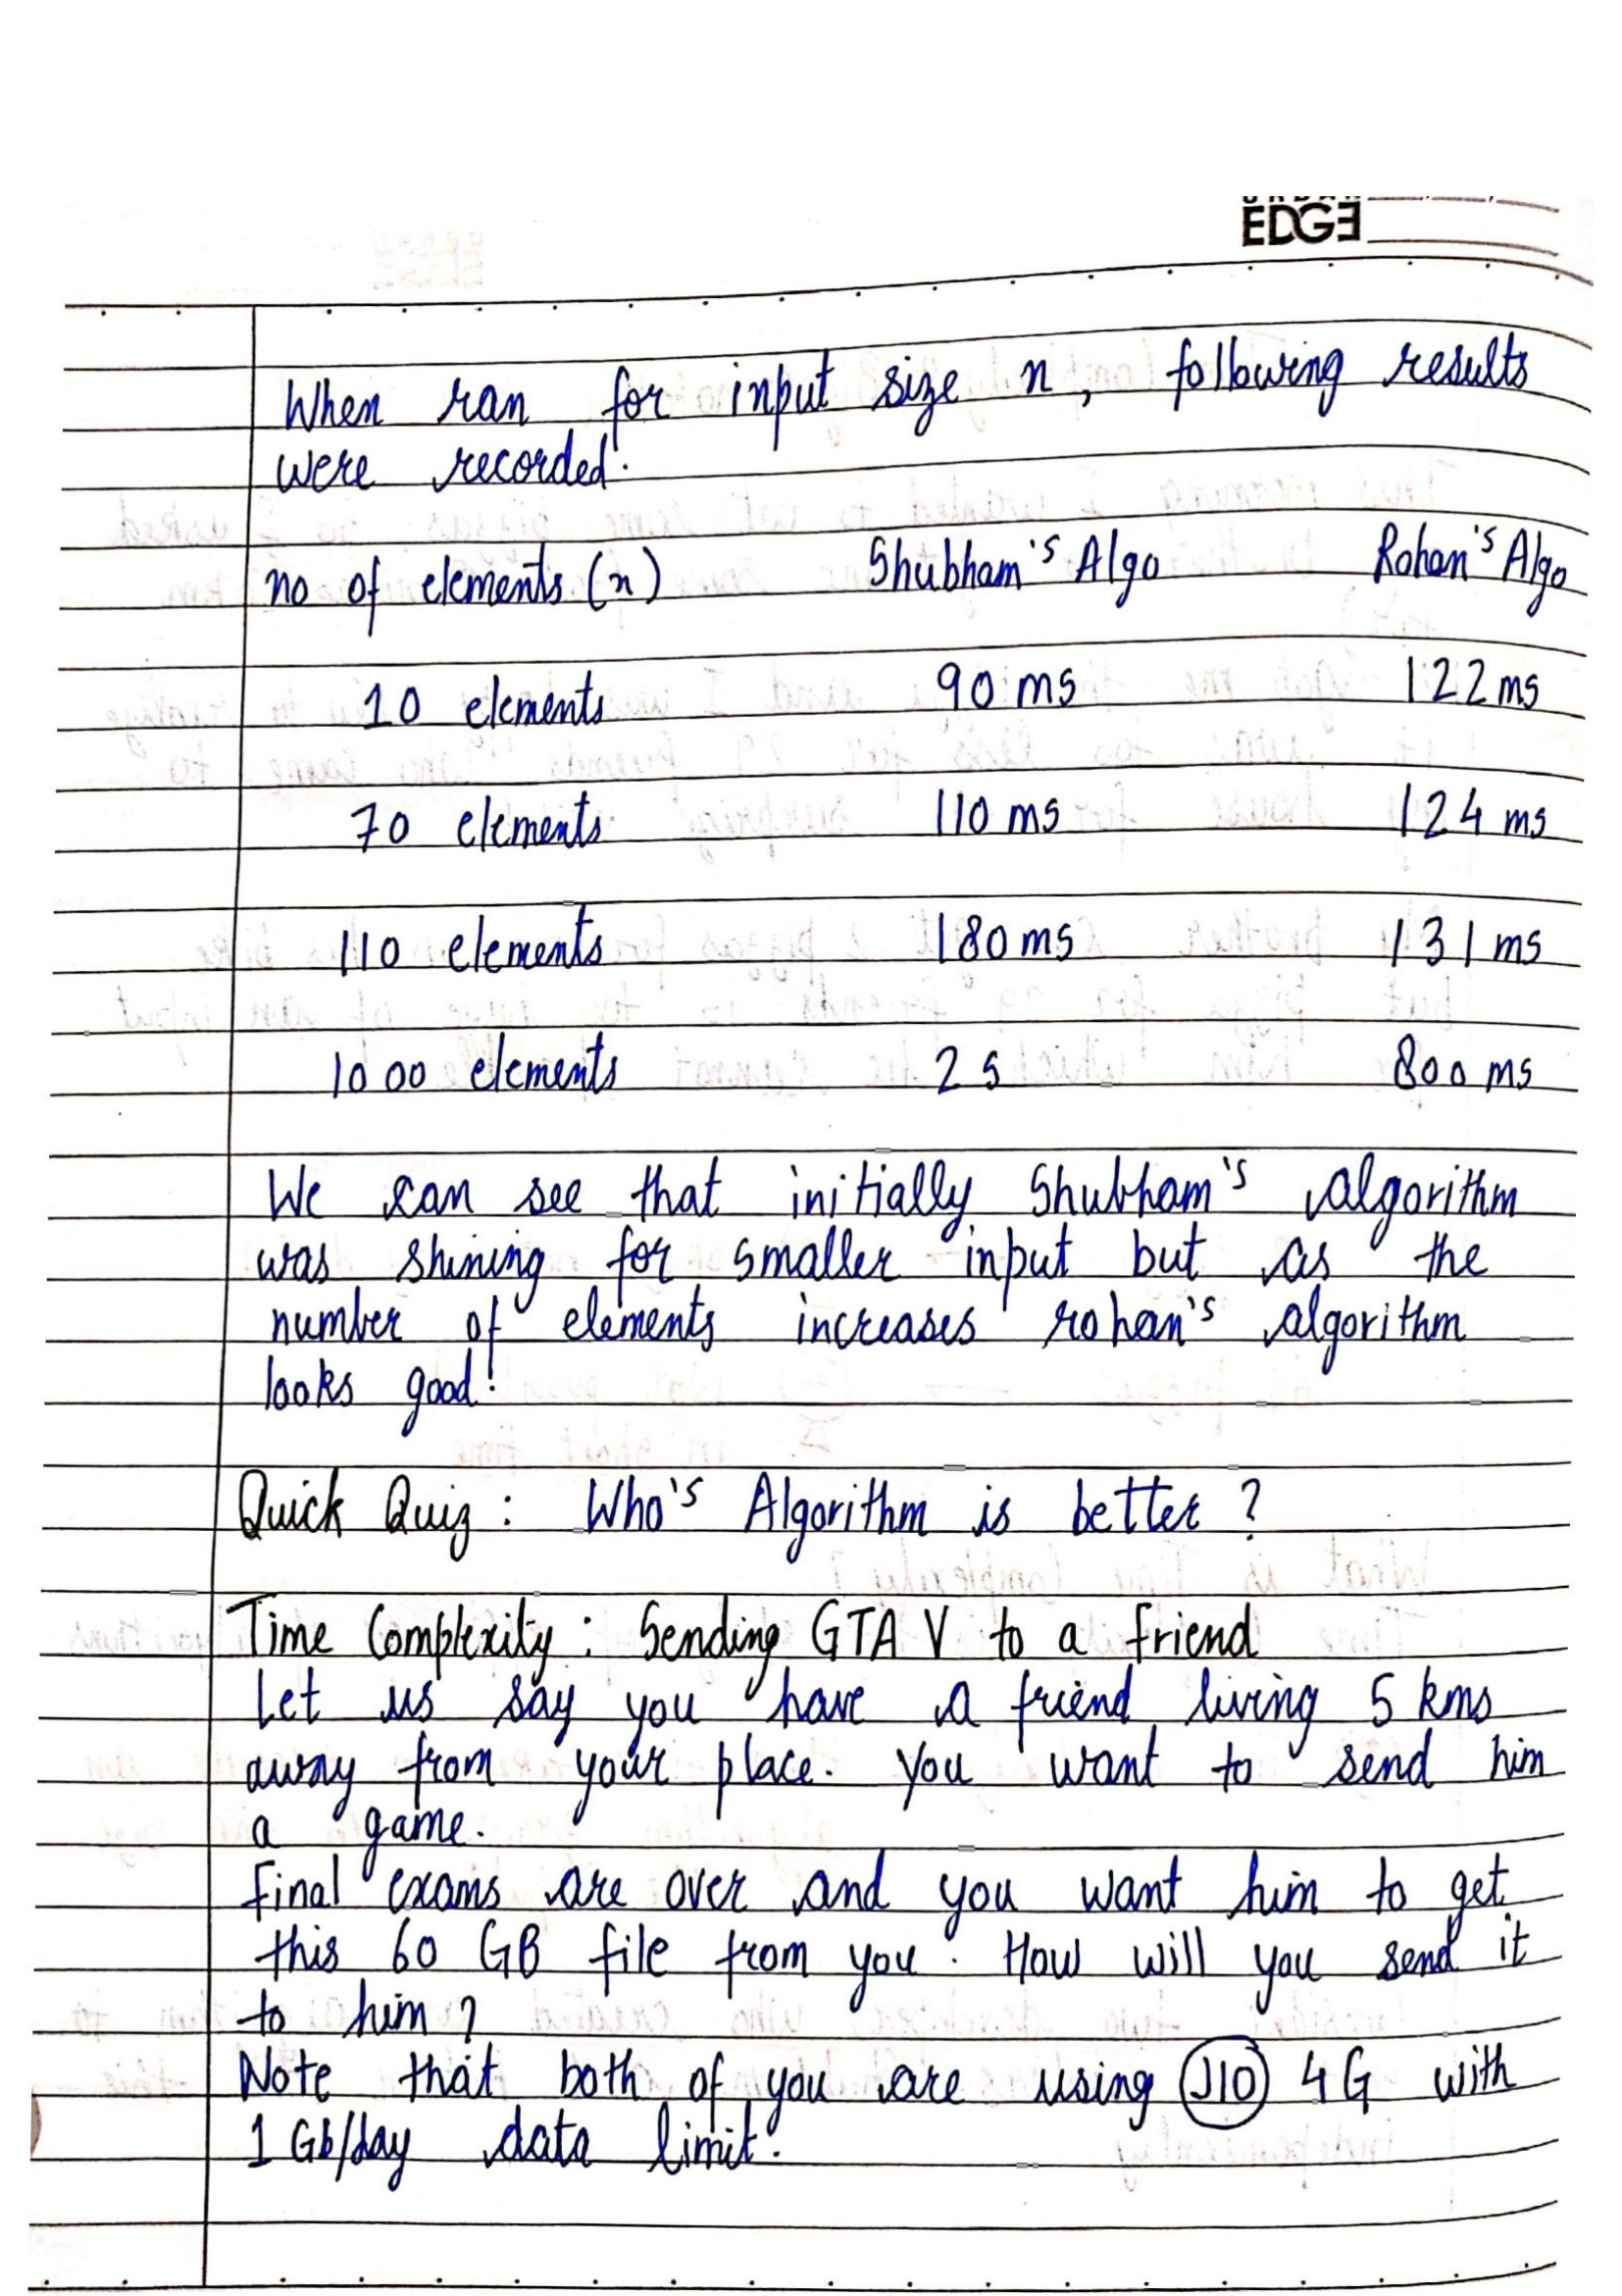 EDGE
When ran for input size n, following results
were recorded.
no of elements (n) Shubham's Algo Rohan's Algo
10 elements 90 ms 122 ms
70 elements 110 ms 124 ms
110 elements 180 ms 131 ms
1000 elements 2 s 800 ms
We can see that initially Shubham's algorithm
was shining for smaller input but as the
number of elements increases rohan's algorithm
looks good!
Quick Quiz : Who's Algorithm is better ?
Time Complexity : Sending GTA V to a friend
Let us say you have a friend living 5 kms
away from your place. You want to send him
a game.
Final exams are over and you want him to get
this 60 GB file from you. How will you send it
to him ?
Note that both of you are using JIO 4G with
1 Gb/day data limit.